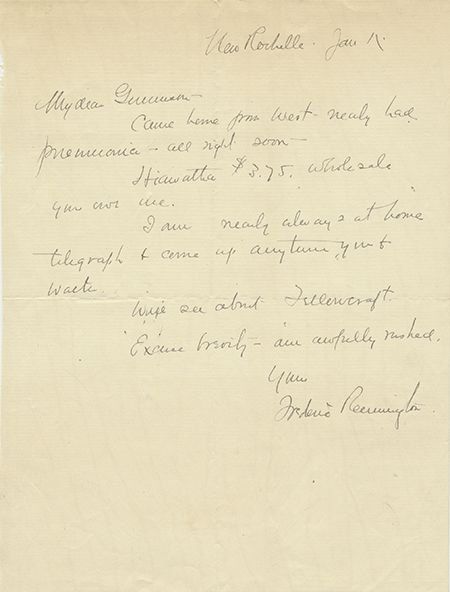 New Rochelle. Jan
My dear
Came home from West - nearly had
pneumonia - all right soon -
Hiawatha $3.75. wholesale
you owe me.
I am nearly always at home
telegraph & come up anytime you &
wife see about
Excuse brevity - am awfully rushed.
Yours
Frederic Remington.